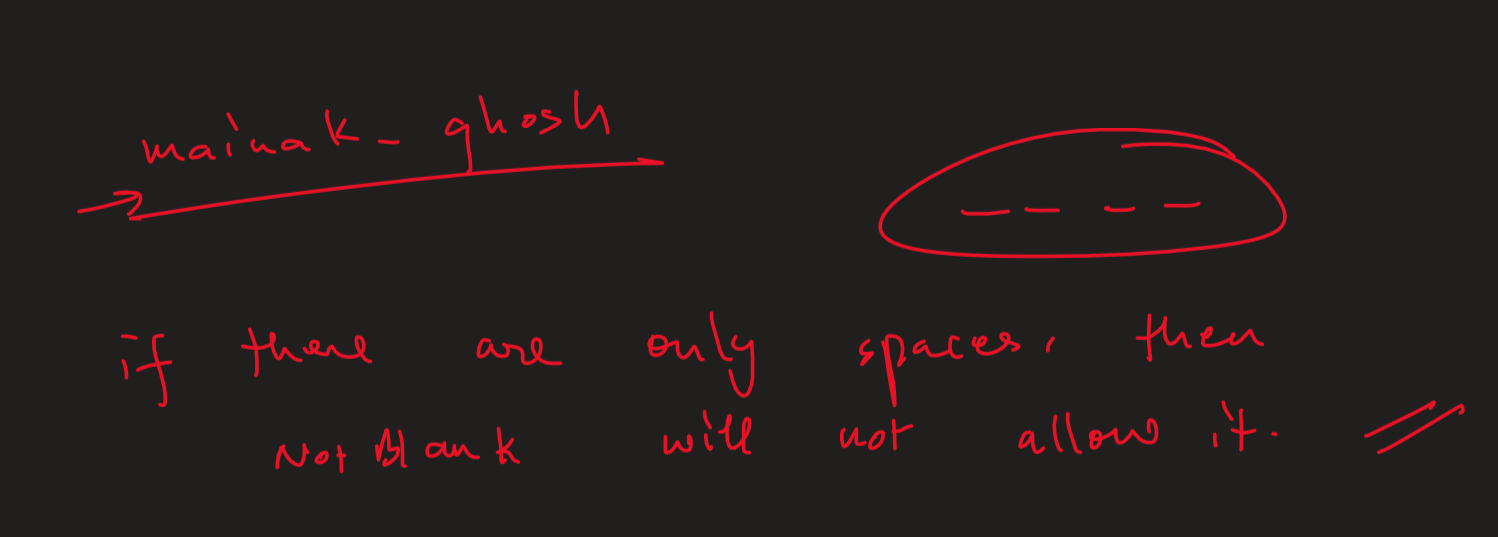 mainak - ghosh
if there are only spaces, then
NotBlank will not allow it.